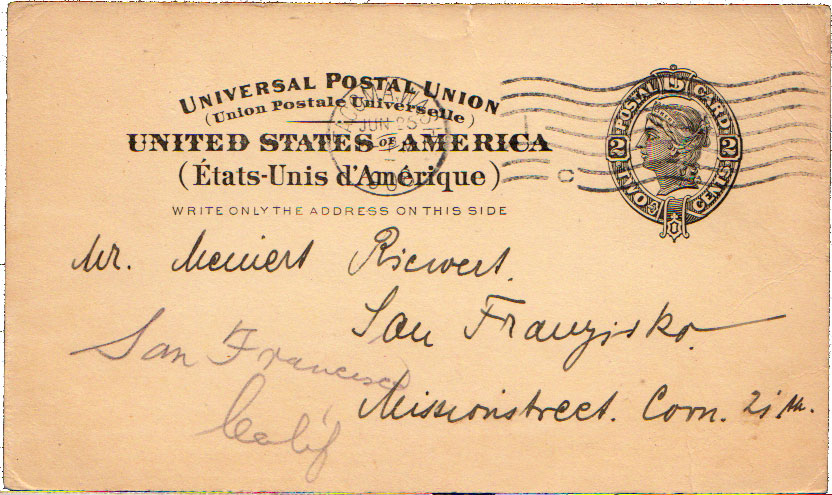 UNIVERSAL POSTAL UNION
(Union Postale Universelle)
UNITED STATES OF AMERICA
(États-Unis d'Amérique)
WRITE ONLY THE ADDRESS ON THIS SIDE
TACOMA, WASH.
JUN 25
POSTAL CARD
2 2
TWO CENTS
Mr. Meinert Riewert.
San Franzisko
San Francisco
Calif
Missionstreet. Corn. 21